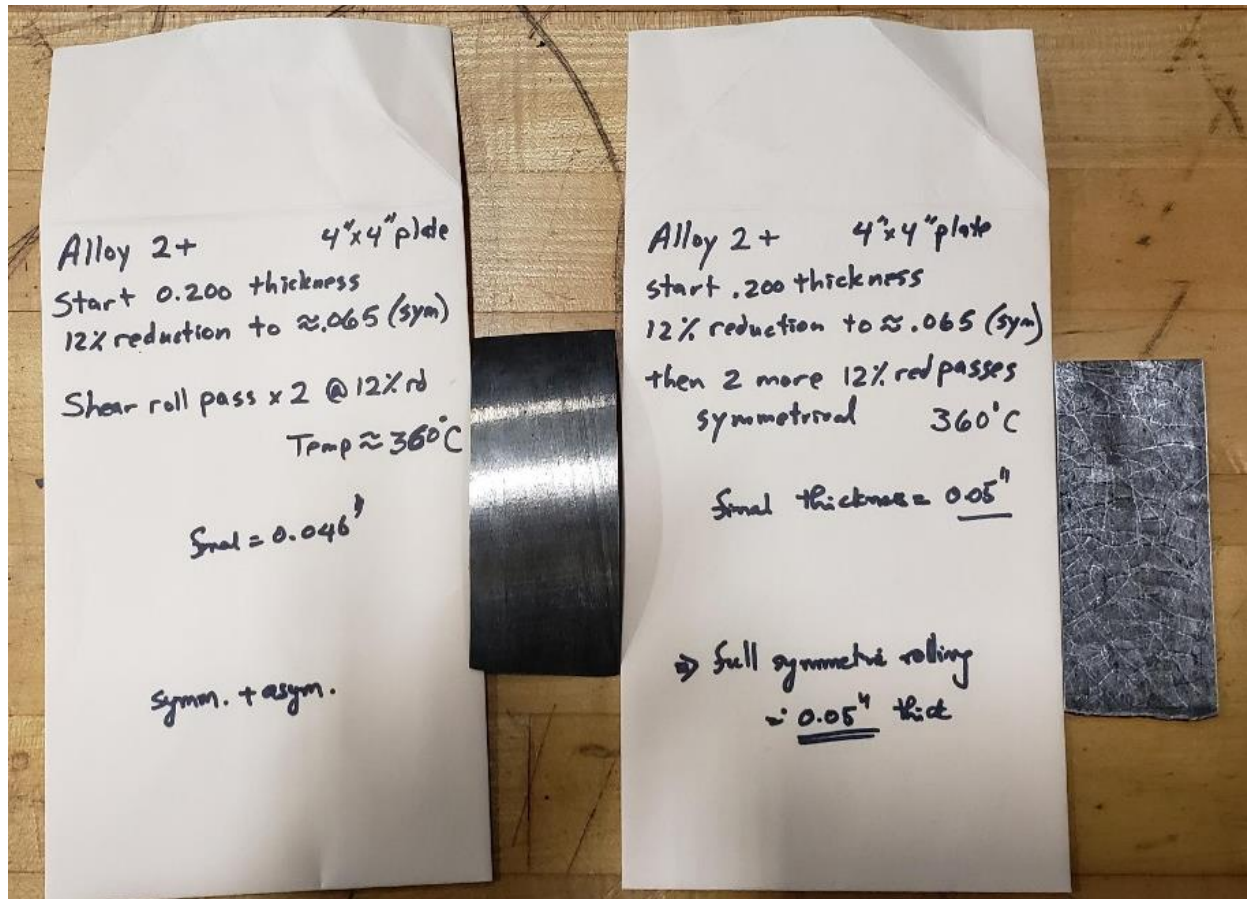 Alloy 2+ 4"x4" plate
Start 0.200 thickness
12% reduction to ≈.065 (sym)
Shear roll pass x 2 @ 12% rd
Temp ≈ 360°C
final = 0.046"
symm. + asym.
Alloy 2+ 4"x4" plate
start .200 thickness
12% reduction to ≈ .065 (sym)
then 2 more 12% red passes
symmetrical 360°C
final thickness = 0.05"
⇒ full symmetric rolling
= 0.05" thick